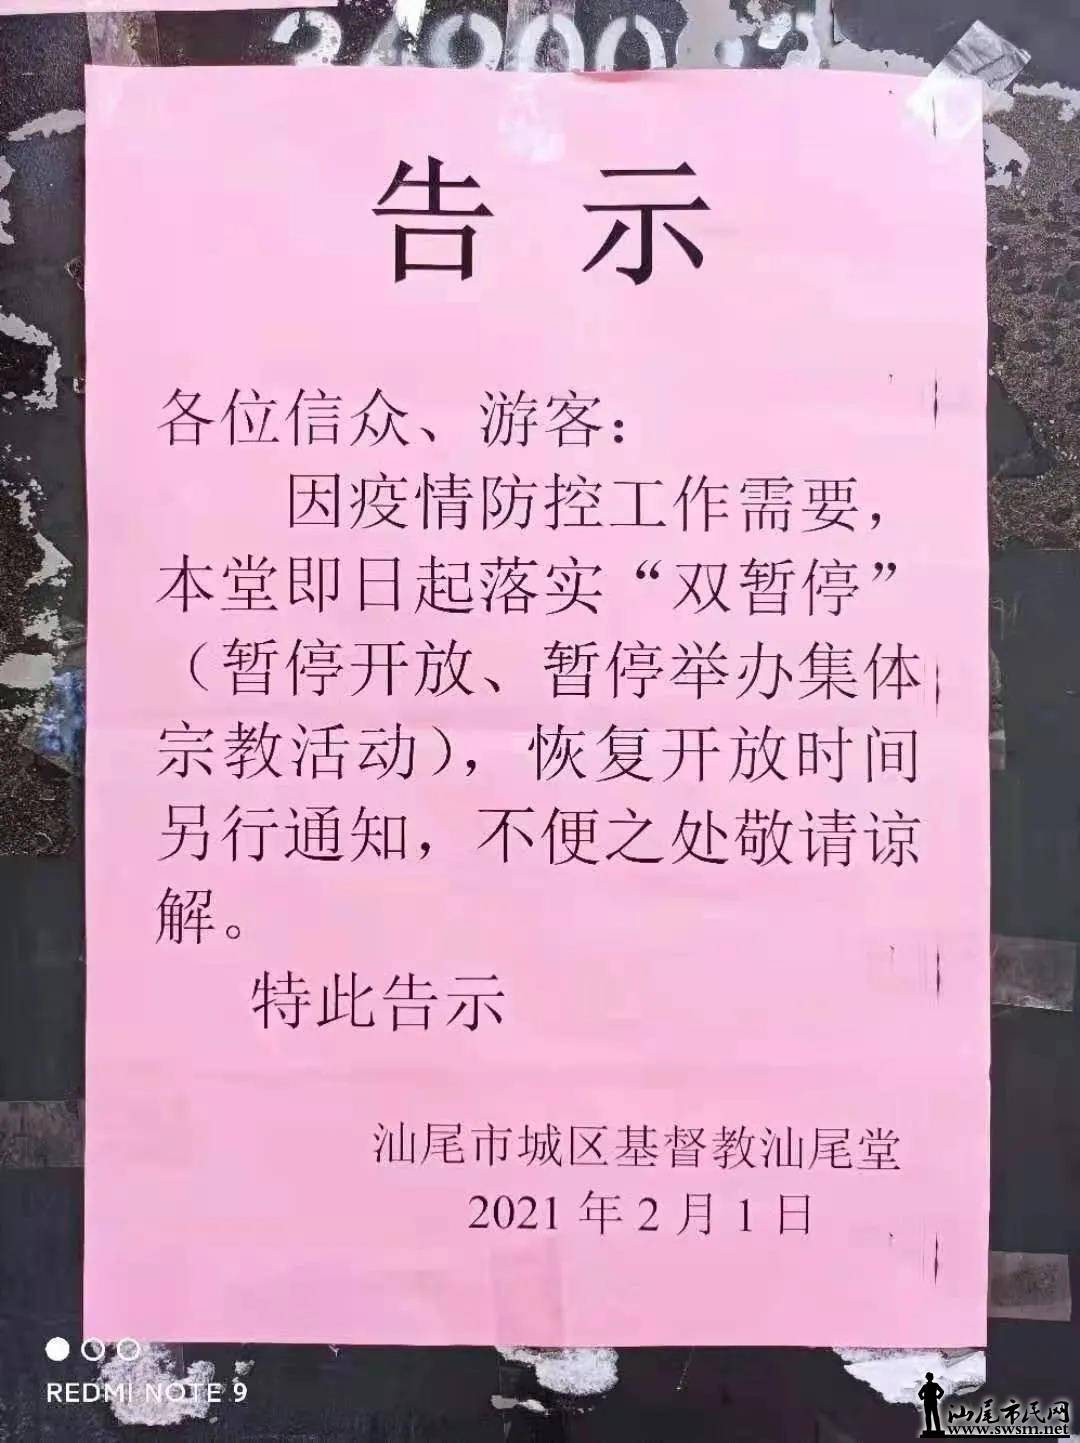 告示
各位信众、游客：
因疫情防控工作需要，
本堂即日起落实“双暂停”
（暂停开放、暂停举办集体
宗教活动），恢复开放时间
另行通知，不便之处敬请谅
解。
特此告示
汕尾市城区基督教汕尾堂
2021年2月1日
REDMI NOTE 9
汕尾市民网
www.swsm.net